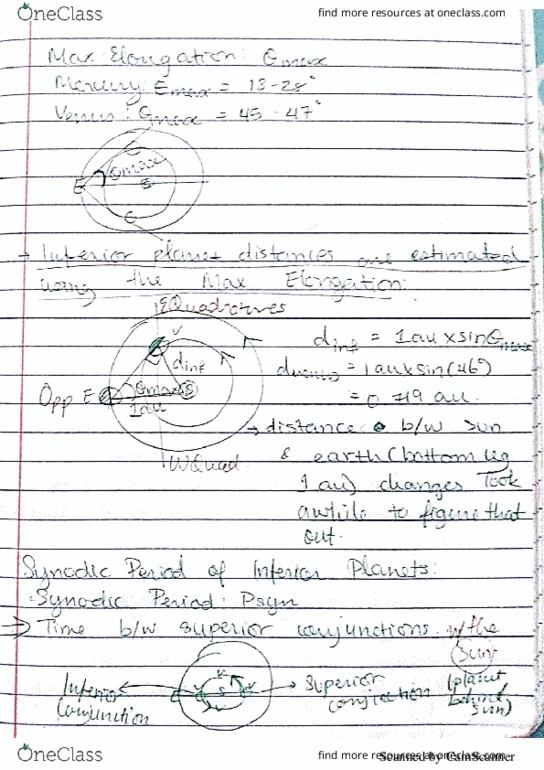 OneClass
find more resources at oneclass.com
Max Elongation: Emax
Mercury: Emax = 18-28°
Venus: Emax = 45-47°
Emax
E
S
→ Inferior planet distances are estimated
using the Max Elongation:
EQuadratures
V
dinf = 1au x sin Emax
dinf
dvenus = 1au x sin(46°)
Opp E Emax S
= 0.719 au.
1au
→ distance b/w sun
WQuad
& earth (bottom leg
1 au) changes Took
awhile to figure that
out.
Synodic Period of Inferior Planets:
-Synodic Period: Psyn
⇒ Time b/w superior conjunctions w/the
Sun
Inferior
conjunction
S
→ Superior
conjunction
(planet
behind
sun)
OneClass
find more resources at oneclass.com
Scanned by CamScanner